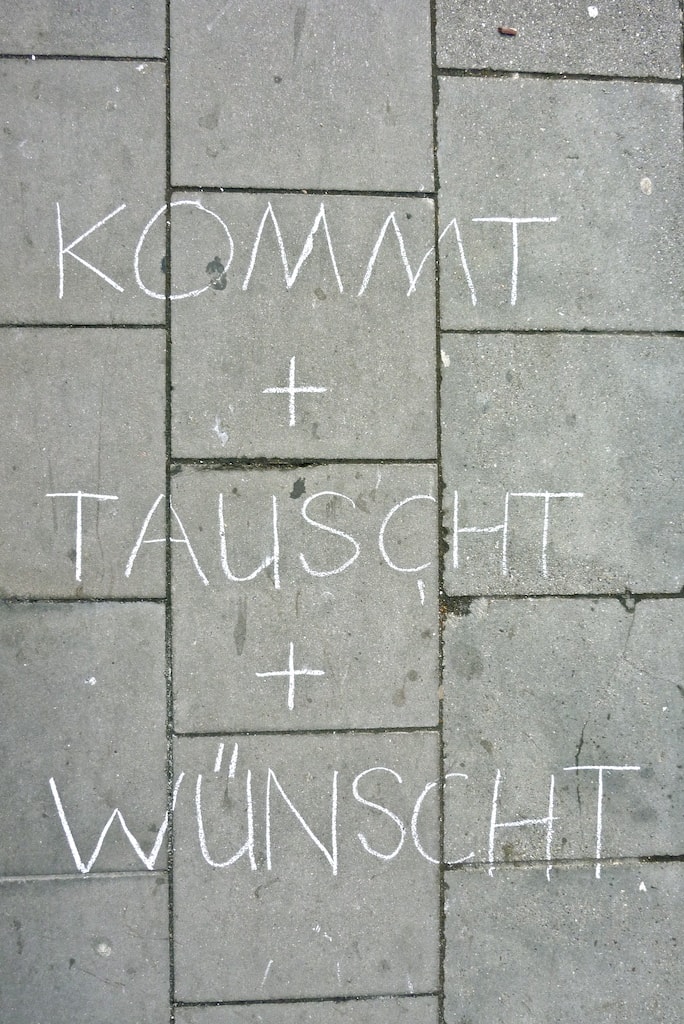 KOMMT
+
TAUSCHT
+
WÜNSCHT